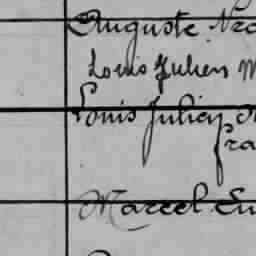 Auguste
Louis Julien M
Louis Julien
Marcel